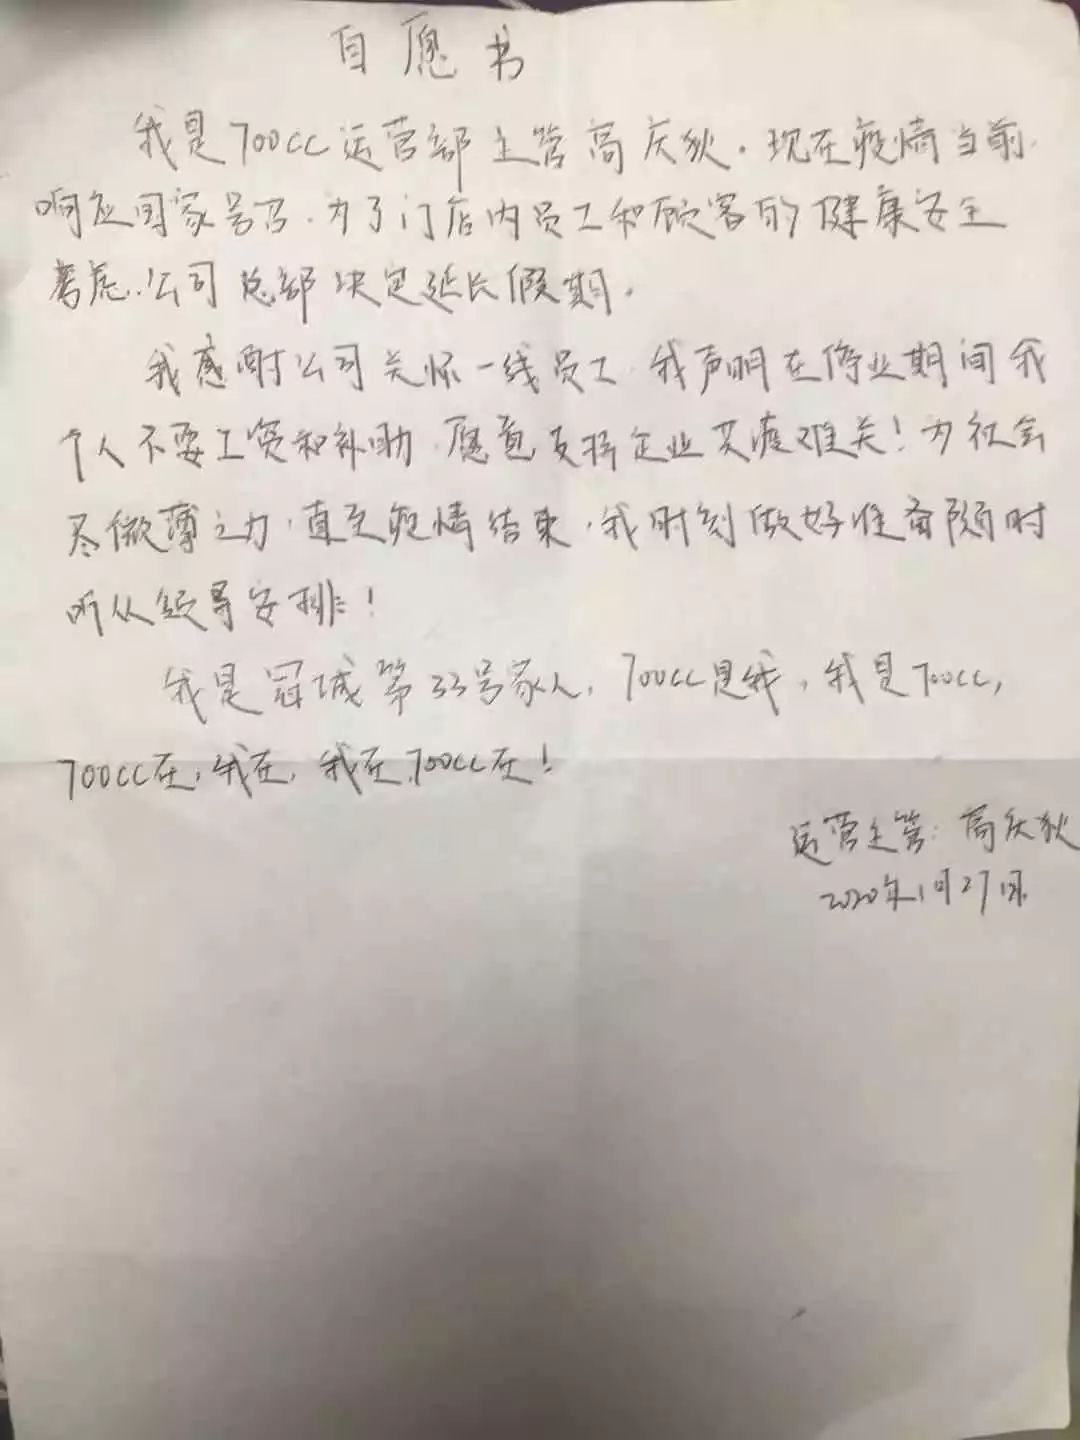 自愿书
我是700CC运营部主管高庆狄.现在疫情当前.
响应国家号召.为了门店内员工和顾客的健康安全
考虑.公司总部决定延长假期.
我感谢公司关怀一线员工.我声明在停业期间我
个人不要工资和补助.愿意支持企业共渡难关!为社会
尽微薄之力.直至疫情结束.我时刻做好准备随时
听从领导安排!
我是冠诚第33号家人,700CC是我,我是700CC,
700CC在,我在,我在,700CC在!
运营主管:高庆狄
2020年1月27日.